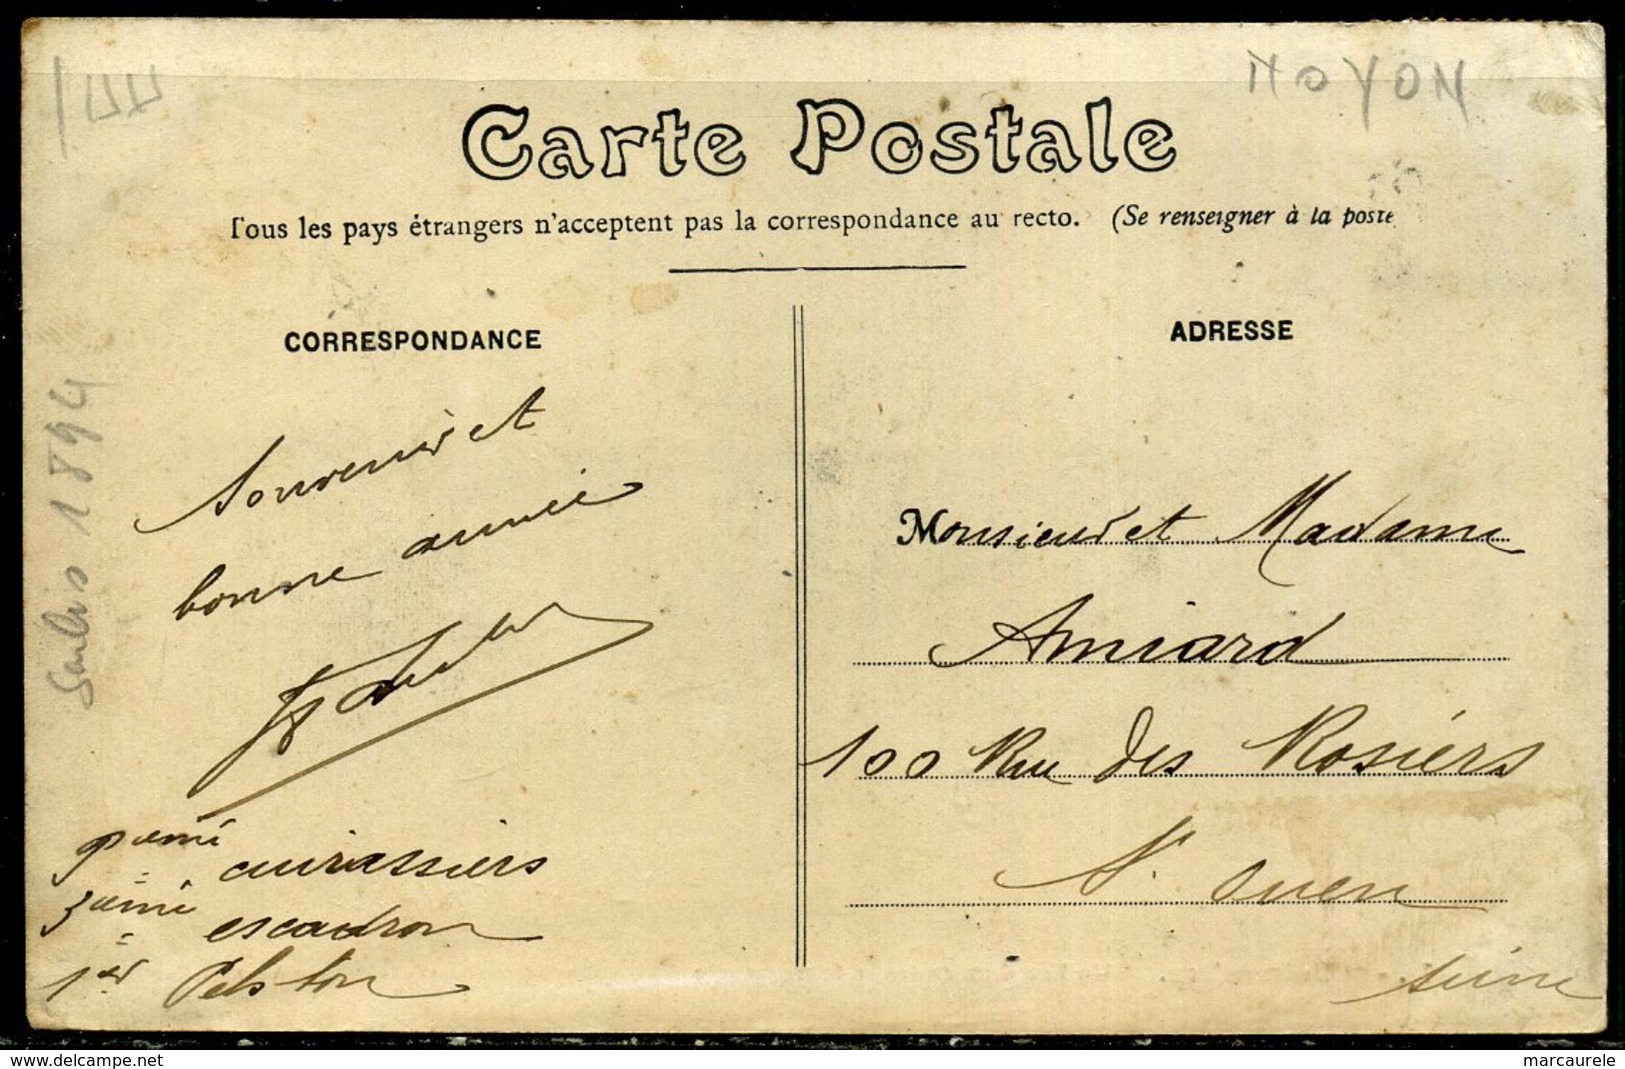 NOYON
Carte Postale
Tous les pays étrangers n'acceptent pas la correspondance au recto. (Se renseigner à la poste
CORRESPONDANCE
Souvenir et
bonne année
9ième cuirassiers
3ième escadron
1er Peloton
1894
ADRESSE
Monsieur et Madame
Amiard
100 Rue des Rosiers
St. Ouen
Seine
www.delcampe.net
marcaurele